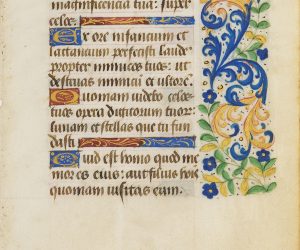 magnificencia tua: super
celos.
Ex ore infancium et
lactancium perfecisti laude
propter inimicos tuos: ut
destruas inimicu et ultore.
Quoniam videbo celos
tuos opera digitorum tuor:
lunam et stellas que tu fun
dasti.
Quid est homo quod me
mor es eius: aut filius hois
quoniam visitas eum.